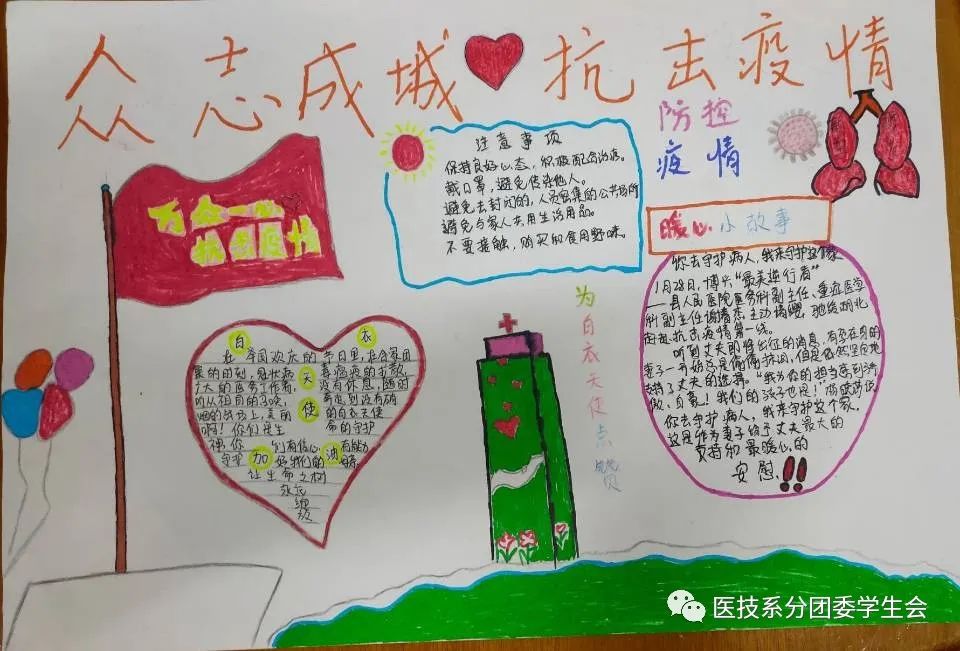 众志成城 抗击疫情
防控
疫情
万众一心
抗击疫情
注意事项
保持良好心态,积极配合治疗。
戴口罩,避免传染他人。
避免去封闭的,人员密集的公共场所
避免与家人共用生活用品。
不要接触,购买和食用野味。
暖心小故事
你去守护病人,我来守护这个家
1月28日,博兴“最美逆行者”
县人民医院医务科副主任、重症医学
科副主任 主动请缨,驰援湖北
抗击疫情第一线。
听到丈夫即将出征的消息,有孕在身的
妻子 但是 坚定地
支持了丈夫的选择。“我为你的担当感到骄
傲、自豪!我们的孩子也是!”
你去守护病人,我来守护这个家。
这是作为妻子给予丈夫最大的
支持和最暖心的
安慰!!
为白衣天使点赞
白 衣
天
使
加 油
在举国欢庆的节日里,在合家团
聚的时刻,
大的医务工作者 没有休息,随时
听从祖国的召唤,
烟的战场上,美的白衣天使
啊!你们是生命的守护
神,你们有信心,有能力
守护好我们的
让生命之树
永远
医技系分团委学生会